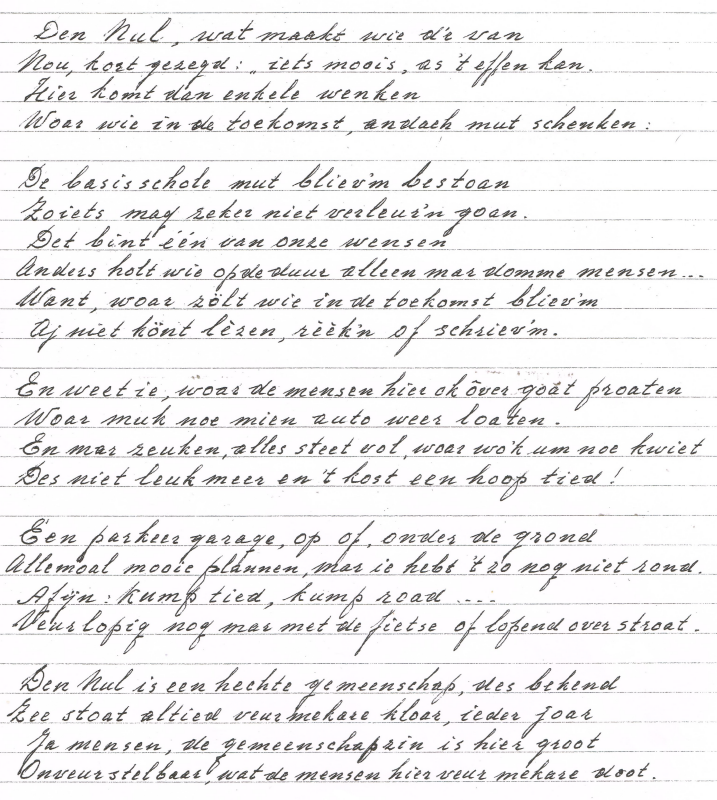 Den Nul, wat maakt wie d'r van
Nou, kort gezegd: „iets moois, as 't effen kan.
Hier komt dan enkele wenken
Woar wie in de toekomst, andach mut schenken:
De basisschole mut bliev'm bestoan
Zoiets mag zeker niet verleur'n goan.
Det bint één van onze wensen
Anders holt wie op de duur alleen mar domme mensen...
Want, woar zölt wie in de toekomst bliev'm
Aj niet könt lèzen, rèèk'n of schriev'm.
En weet ie, woar de mensen hier ok över goat proaten
Woar muk noe mien auto weer loaten.
En mar zeuken, alles steet vol, woar wo'k um noe kwiet
Des niet leuk meer en 't kost een hoop tied!
Een parkeer garage, op of, onder de grond
Allemoal mooie plannen, mar ie hebt 't zo nog niet rond.
Afijn: kump tied, kump road ....
Veurlopig nog mar met de fietse of lopend over stroat.
Den Nul is een hechte gemeenschap, des bekend
Zee stoat altied veur mekare kloar, ieder joar
Ja mensen, de gemeenschapzin is hier groot
Onveurstelbaar, wat de mensen hier veur mekare doot.